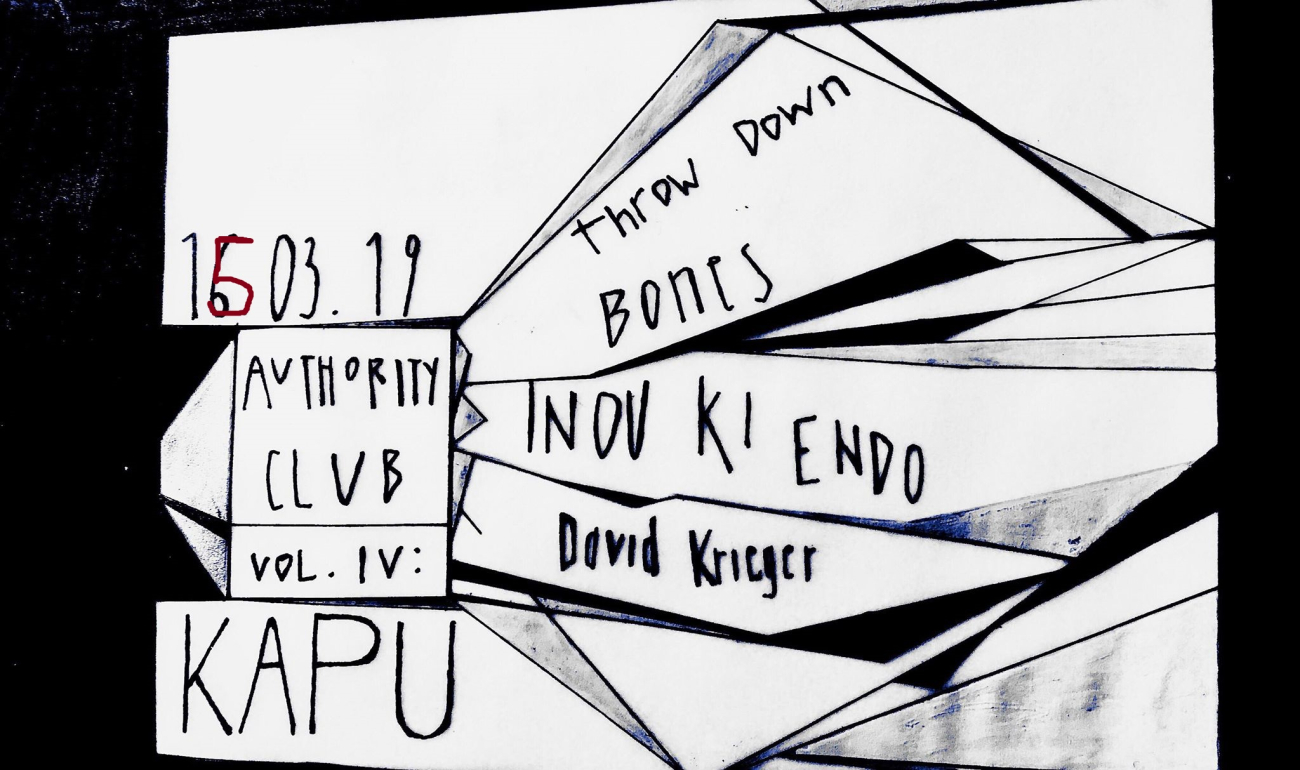 15 03. 19
AUTHORITY
CLUB
VOL. IV:
KAPU
throw DOWN
BONES
INOU KI ENDO
David Krieger